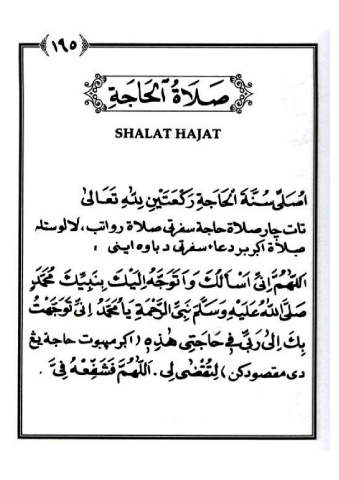 ١٩٥
صَلَاةُ الْحَاجَةِ
SHALAT HAJAT
اُصَلِّى سُنَّةَ الْحَاجَةِ رَكْعَتَيْنِ لِلّٰهِ تَعَالٰى
تات چار صلاة حاجة سفرتي صلاة رواتب، لالو ستله
صلاة اكو بر دعاء سفرتي دباوه اينى :
اَللّٰهُمَّ اِنِّىْ اَسْأَلُكَ وَاَتَوَجَّهُ اِلَيْكَ بِنَبِيِّكَ مُحَمَّدٍ
صَلَّى اللّٰهُ عَلَيْهِ وَسَلَّمَ نَبِيِّ الرَّحْمَةِ يَا مُحَمَّدُ اِنِّىْ تَوَجَّهْتُ
بِكَ اِلٰى رَبِّىْ فِى حَاجَتِىْ هٰذِهِ (اكو مپبوت حاجة يڠ
دى مقصودكن) لِتُقْضٰى لِى. اَللّٰهُمَّ فَشَفِّعْهُ فِيَّ.